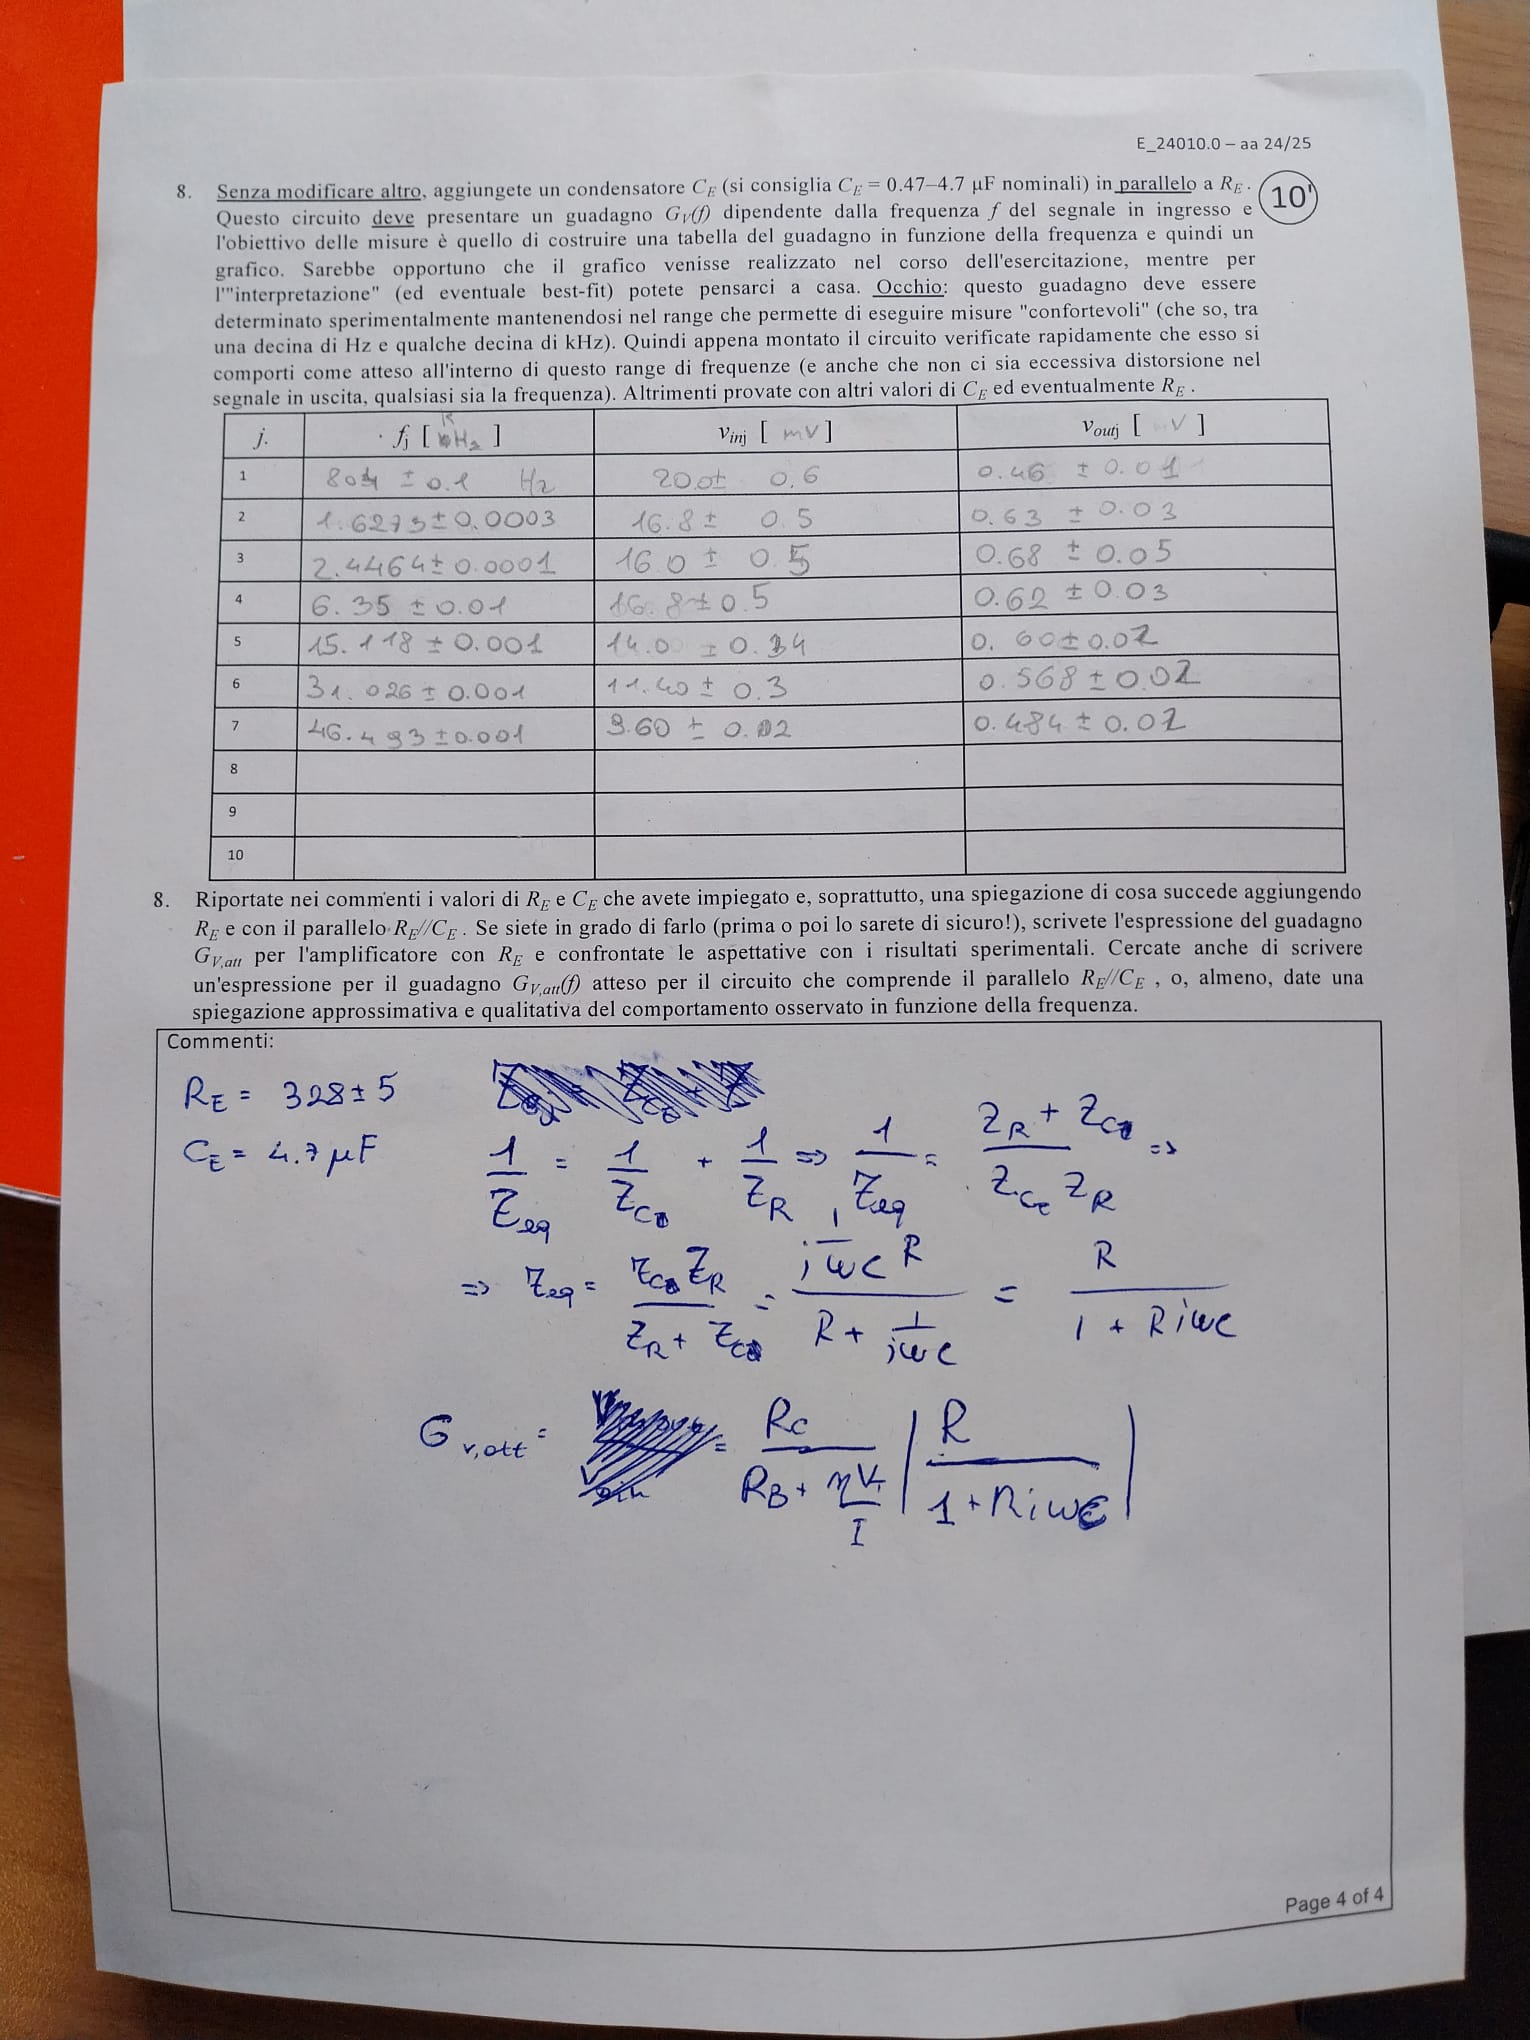 E_24010.0 – aa 24/25
8. Senza modificare altro, aggiungete un condensatore CE (si consiglia CE = 0.47–4.7 μF nominali) in parallelo a RE.
10'
Questo circuito deve presentare un guadagno GV(f) dipendente dalla frequenza f del segnale in ingresso e
l'obiettivo delle misure è quello di costruire una tabella del guadagno in funzione della frequenza e quindi un
grafico. Sarebbe opportuno che il grafico venisse realizzato nel corso dell'esercitazione, mentre per
l'"interpretazione" (ed eventuale best-fit) potete pensarci a casa. Occhio: questo guadagno deve essere
determinato sperimentalmente mantenendosi nel range che permette di eseguire misure "confortevoli" (che so, tra
una decina di Hz e qualche decina di kHz). Quindi appena montato il circuito verificate rapidamente che esso si
comporti come atteso all'interno di questo range di frequenze (e anche che non ci sia eccessiva distorsione nel
segnale in uscita, qualsiasi sia la frequenza). Altrimenti provate con altri valori di CE ed eventualmente RE .
j. fj [ kHz ] vinj [ mV ] voutj [ V ]
1 804 ± 0.1 Hz 20.0± 0.6 0.46 ± 0.01
2 1.6273±0.0003 16.8 ± 0.5 0.63 ± 0.03
3 2.4464±0.0001 16.0 ± 0.5 0.68 ± 0.05
4 6.35 ±0.01 16.8±0.5 0.62 ±0.03
5 15.118 ±0.001 14.0 ± 0.34 0.60±0.02
6 31.026 ±0.001 11.40 ± 0.3 0.568±0.02
7 46.493±0.001 9.60 ± 0.02 0.484± 0.02
8
9
10
8. Riportate nei commenti i valori di RE e CE che avete impiegato e, soprattutto, una spiegazione di cosa succede aggiungendo
RE e con il parallelo RE//CE . Se siete in grado di farlo (prima o poi lo sarete di sicuro!), scrivete l'espressione del guadagno
GV,att per l'amplificatore con RE e confrontate le aspettative con i risultati sperimentali. Cercate anche di scrivere
un'espressione per il guadagno GV,att(f) atteso per il circuito che comprende il parallelo RE//CE , o, almeno, date una
spiegazione approssimativa e qualitativa del comportamento osservato in funzione della frequenza.
Commenti:
RE = 328± 5
CE = 4.7 μF
1/Zeq = 1/ZC + 1/ZR => 1/Zeq = (ZR + ZC)/(ZCE ZR) =>
=> Zeq = (ZC ZR)/(ZR + ZC) = (1/(iωC) R)/(R + 1/(iωC)) = R/(1 + Riωc)
Gv,att = = Rc/(RB + ηVT/I |R/(1 + Riωc)|
Page 4 of 4